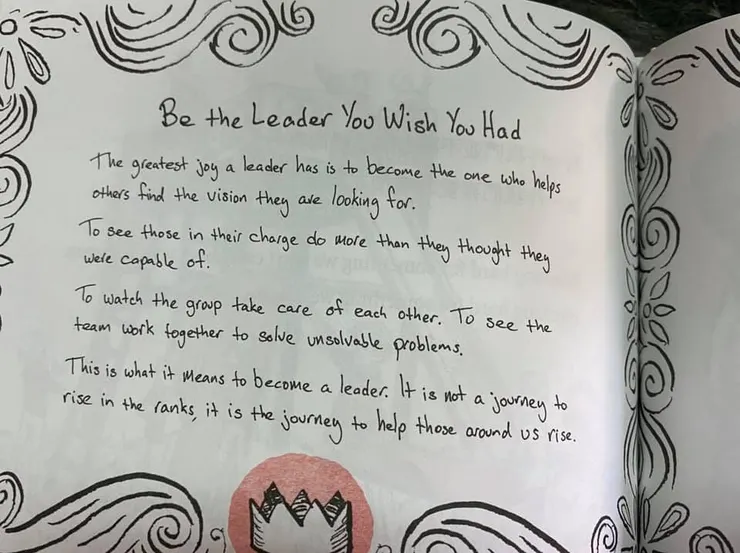 Be the Leader You Wish You Had
The greatest joy a leader has is to become the one who helps
others find the vision they are looking for.
To see those in their charge do more than they thought they
were capable of.
To watch the group take care of each other. To see the
team work together to solve unsolvable problems.
This is what it means to become a leader. It is not a journey to
rise in the ranks, it is the journey to help those around us rise.